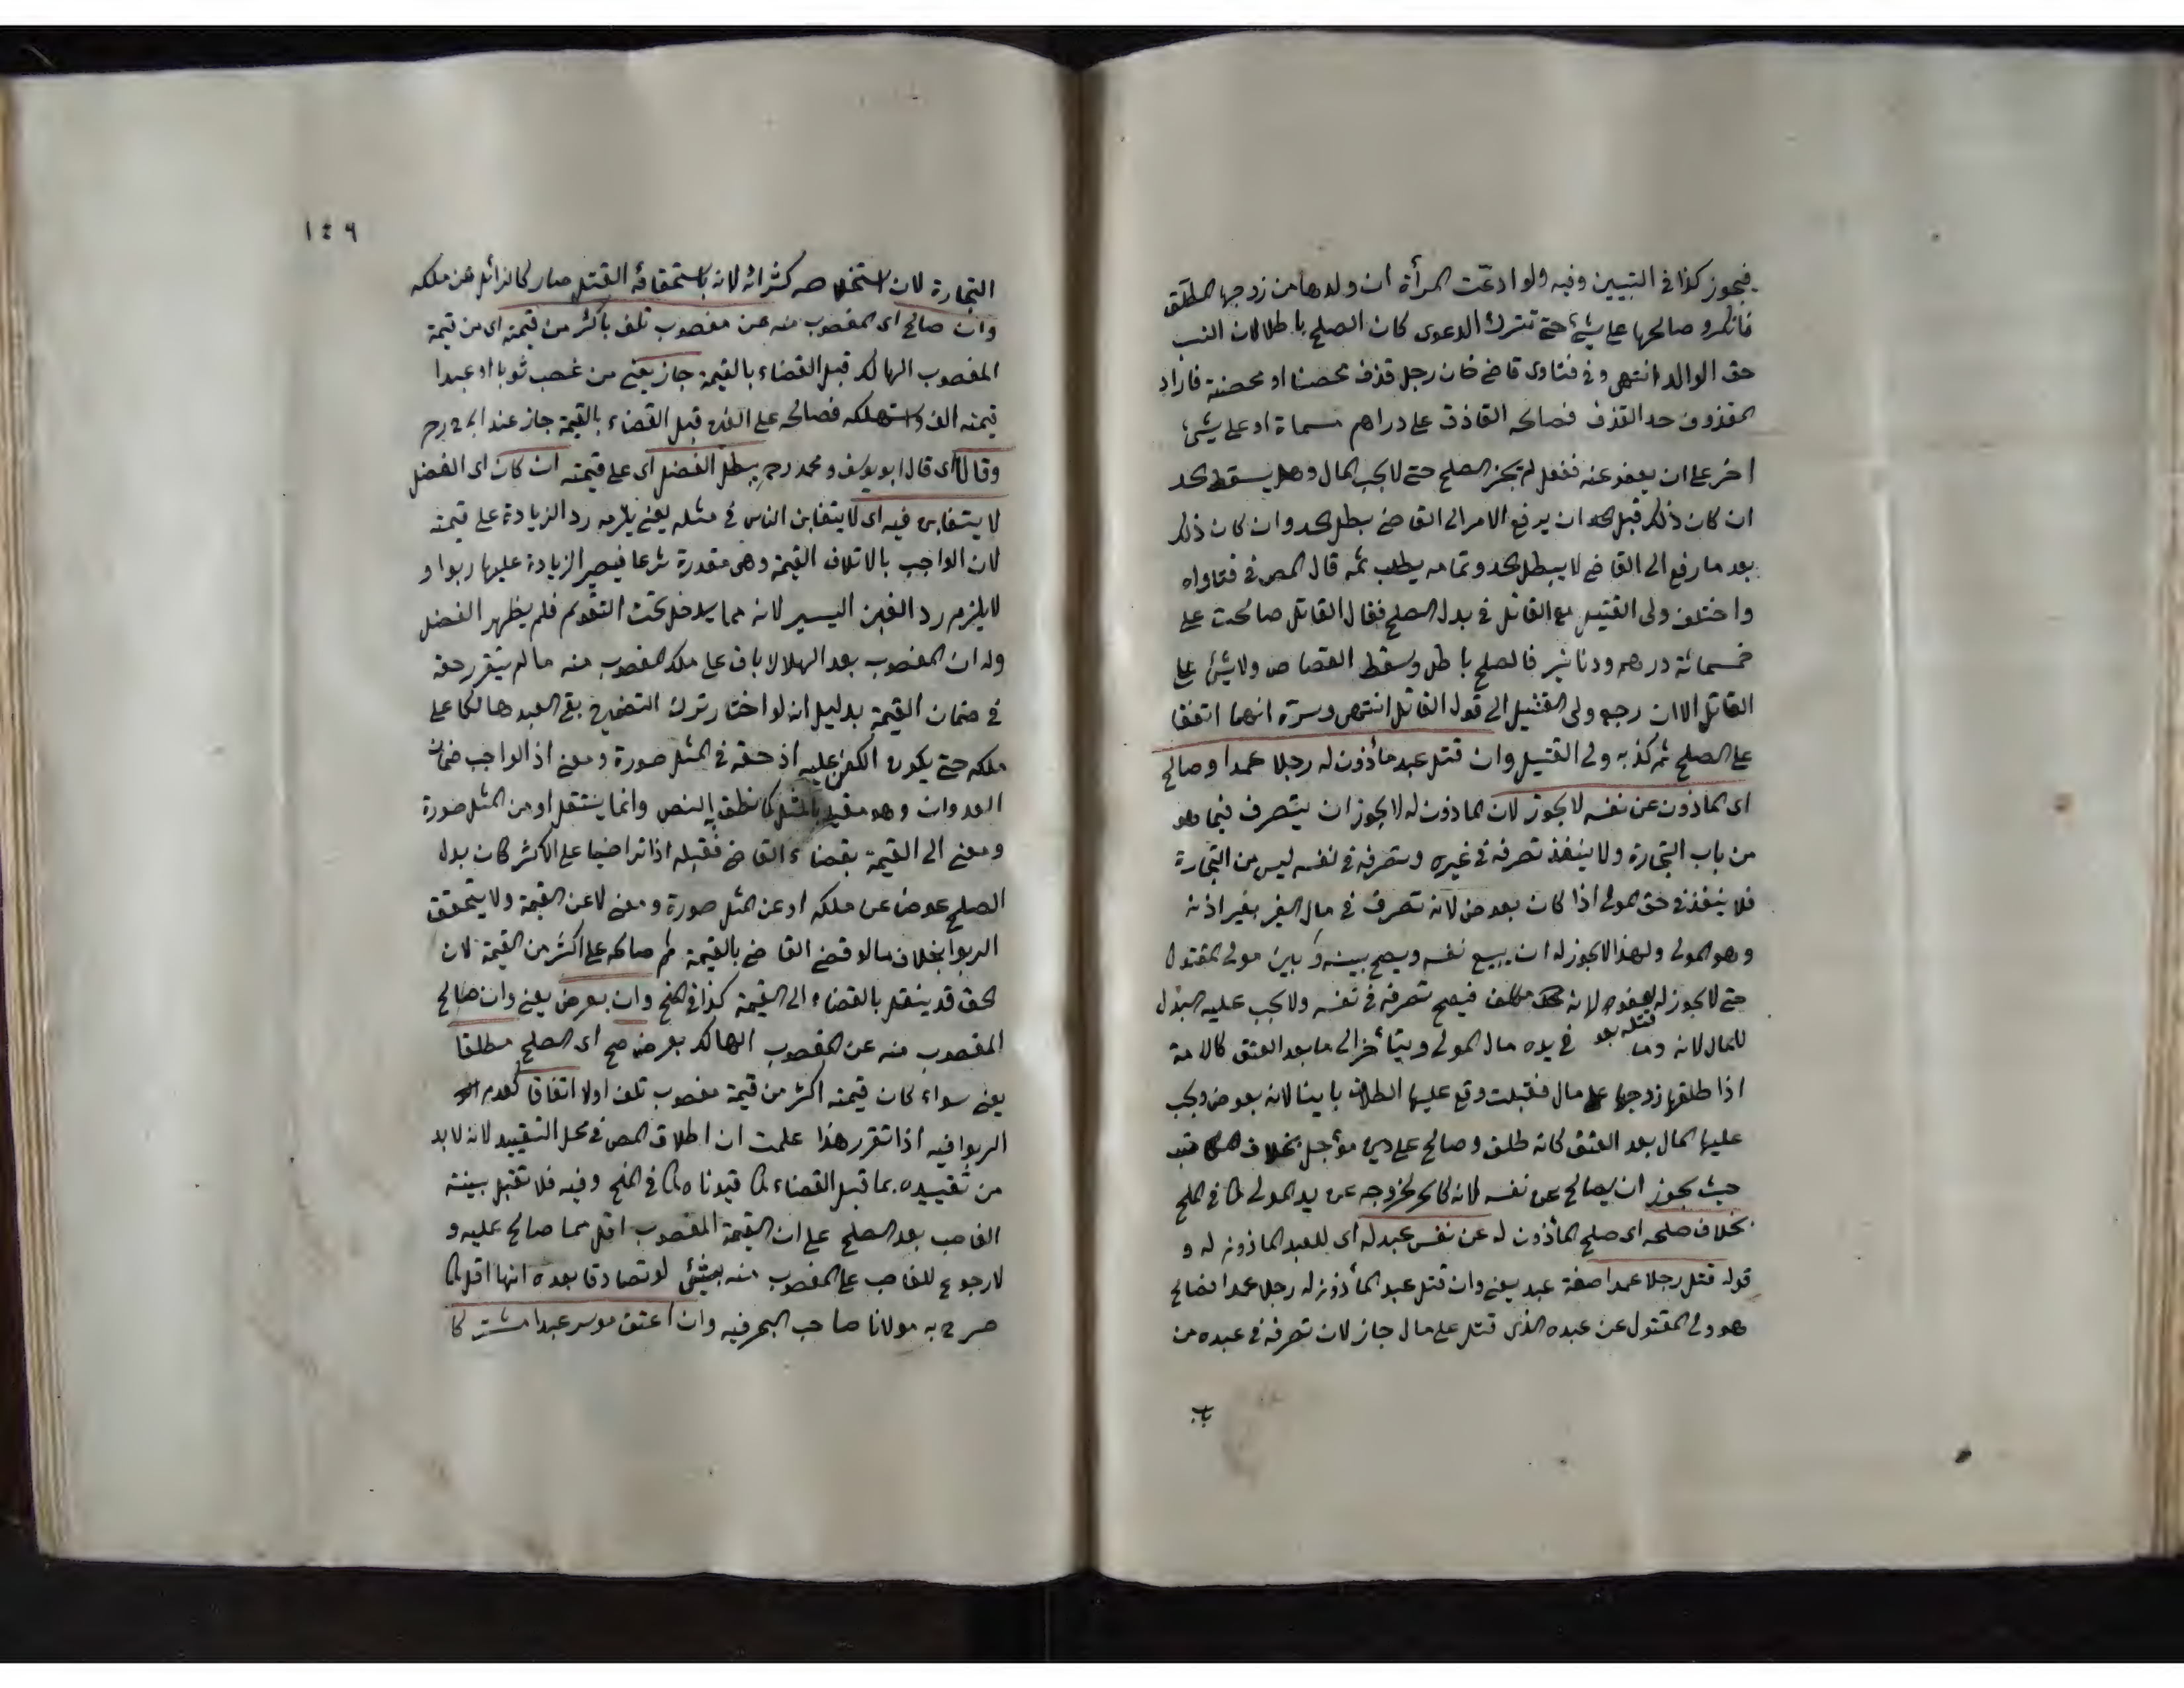 فيجوز كذا في التبيين وفيه ولو ادعت المرأة ان ولدها من زوجها المطلق
فانكر وصالحها على شئ حتى تترك الدعوى كان الصلح باطلا لان النسب
حق الوالد انتهى وفي فتاوى قاضي خان رجل قذف محصنا او محصنة فاراد
المقذوف حد القذف فصالحه القاذف على دراهم مسماة او على شئ
اخر على ان يعفو عنه ففعل لم يجز الصلح حتى لا يجب المال وهل يسقط الحد
ان كان ذلك قبل ان يرفع الامر الى القاضي بطل الحد وان كان ذلك
بعد ما رفع الى القاضي لا يبطل الحد وتمامه يطلب ثمه قال المص في فتاواه
واختلف ولي القتيل مع القاتل في بدل الصلح فقال القاتل صالحت على
خمسمائة درهم ودنانير فالصلح باطل وسقط القصاص ولا شئ على
القاتل الا ان رجع ولي القتيل الى قول القاتل انتهى وسره انهما اتفقا
على الصلح ثم كذبه ولي القتيل وان قتل عبد مأذون له رجلا عمدا وصالح
اى المأذون عن نفسه لا يجوز لان المأذون له لا يجوز ان يتصرف فيما هو
من باب التجارة ولا ينفذ تصرفه في غيره وتصرفه في نفسه ليس من التجارة
فلا ينفذ في حق المولى اذا كان بعوض لانه تصرف في مال الغير بغير اذنه
وهو المولى ولهذا لا يجوز له ان يبيع نفسه ويصح بينه وبين مولى المقتول
حتى لا يجوز له لانه مكلف فيصح تصرفه في نفسه ولا يجب عليه البدل
للحال لانه وما في يده مال المولى ويتأخر الى ما بعد العتق كالامة
اذا طلقها زوجها على مال فقبلت وقع عليها الطلاق باينا لانه بعوض ويجب
عليها المال بعد العتق كانه طلق وصالح على دين مؤجل بخلاف المكاتب
حيث يجوز ان يصالح عن نفسه لانه كالحر لخروجه عن يد المولى كما في المنح
بخلاف صلحه اى صلح المأذون له عن نفس عبد له اى للعبد المأذون له و
قوله قتل رجلا عمدا صفة عبد يعني وان قتل عبد المأذون له رجلا عمدا فصالح
هو ولي المقتول عن عبده الذي قتل على مال جاز لان تصرفه في عبده من
باب
١٤٩
التجارة لان استخلاصه كشرائه لانه باستحقاقه القتل صار كالزائل عن ملكه
وان صالح اى المغصوب منه عن مغصوب تلف باكثر من قيمته اى من قيمة
المغصوب الهالك قبل القضاء بالقيمة جاز يعني من غصب ثوبا او عبدا
قيمته الف واستهلكه فصالحه على الفين قبل القضاء بالقيمة جاز عند ابى ح رح
وقالا اى قال ابو يوسف ومحمد رح يبطل الفضل اى على قيمته ان كان اى الفضل
لا يتغابن فيه اى لا يتغابن الناس في مثله يعني يلزمه رد الزيادة على قيمته
لان الواجب بالاتلاف القيمة وهى مقدرة شرعا فيصير الزيادة عليها ربوا و
لا يلزم رد الغبن اليسير لانه مما يدخل تحت التقويم فلم يظهر الفضل
وله ان المغصوب بعد الهلاك باق على ملك المغصوب منه ما لم يتقرر حقه
في ضمان القيمة بدليل انه لو اختار ترك التضمين بقي العبد هالكا على
ملكه حتى يكون الكفن عليه اذ حقه في المثل صورة ومعنى اذ الواجب ضمان
العدوان وهو مقيد بالمثل كما نطق به النص وانما ينتقل او من المثل صورة
ومعنى الى القيمة بقضاء القاضي فقبله اذا تراضيا على الاكثر كان بدل
الصلح عوضا عن ملكه او عن المثل صورة ومعنى لا عن القيمة ولا يتحقق
الربوا بخلاف ما لو قضى القاضي بالقيمة ثم صالحه على اكثر من القيمة لان
الحق قد ينتقل بالقضاء الى القيمة كذا في المنح وان بعرض يعني وان صالح
المغصوب منه عن المغصوب الهالك بعرض صح اى الصلح مطلقا
يعني سواء كان قيمته اكثر من قيمة مغصوب تلف اولا اتفاقا لعدم
الربوا فيه اذا تقرر هذا علمت ان اطلاق المص في محل التقييد لانه لا بد
من تقييده بما قبل القضاء كما قيدناه كما في المنح وفيه فلا تقبل بينة
الغاصب بعد الصلح على ان القيمة المغصوب اقل مما صالح عليه و
لا رجوع للغاصب على المغصوب منه بشئ لو تصادقا بعده انها اقل كما
صرح به مولانا صاحب البحر فيه وان اعتق موسر عبدا مشتركا